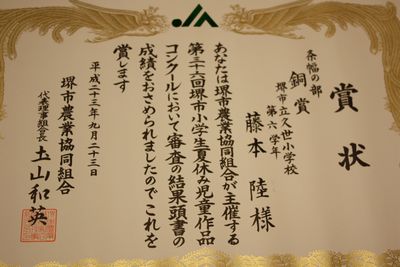 賞状
条幅の部
銅賞
堺市立久世小学校
第六学年
藤本 陸 様
あなたは堺市農業協同組合が主催する
第三十六回堺市小学生夏休み児童作品
コンクールにおいて審査の結果頭書の
成績をおさめられましたのでこれを
賞します
平成二十三年九月二十三日
堺市農業協同組合
代表理事組合長 土山和英